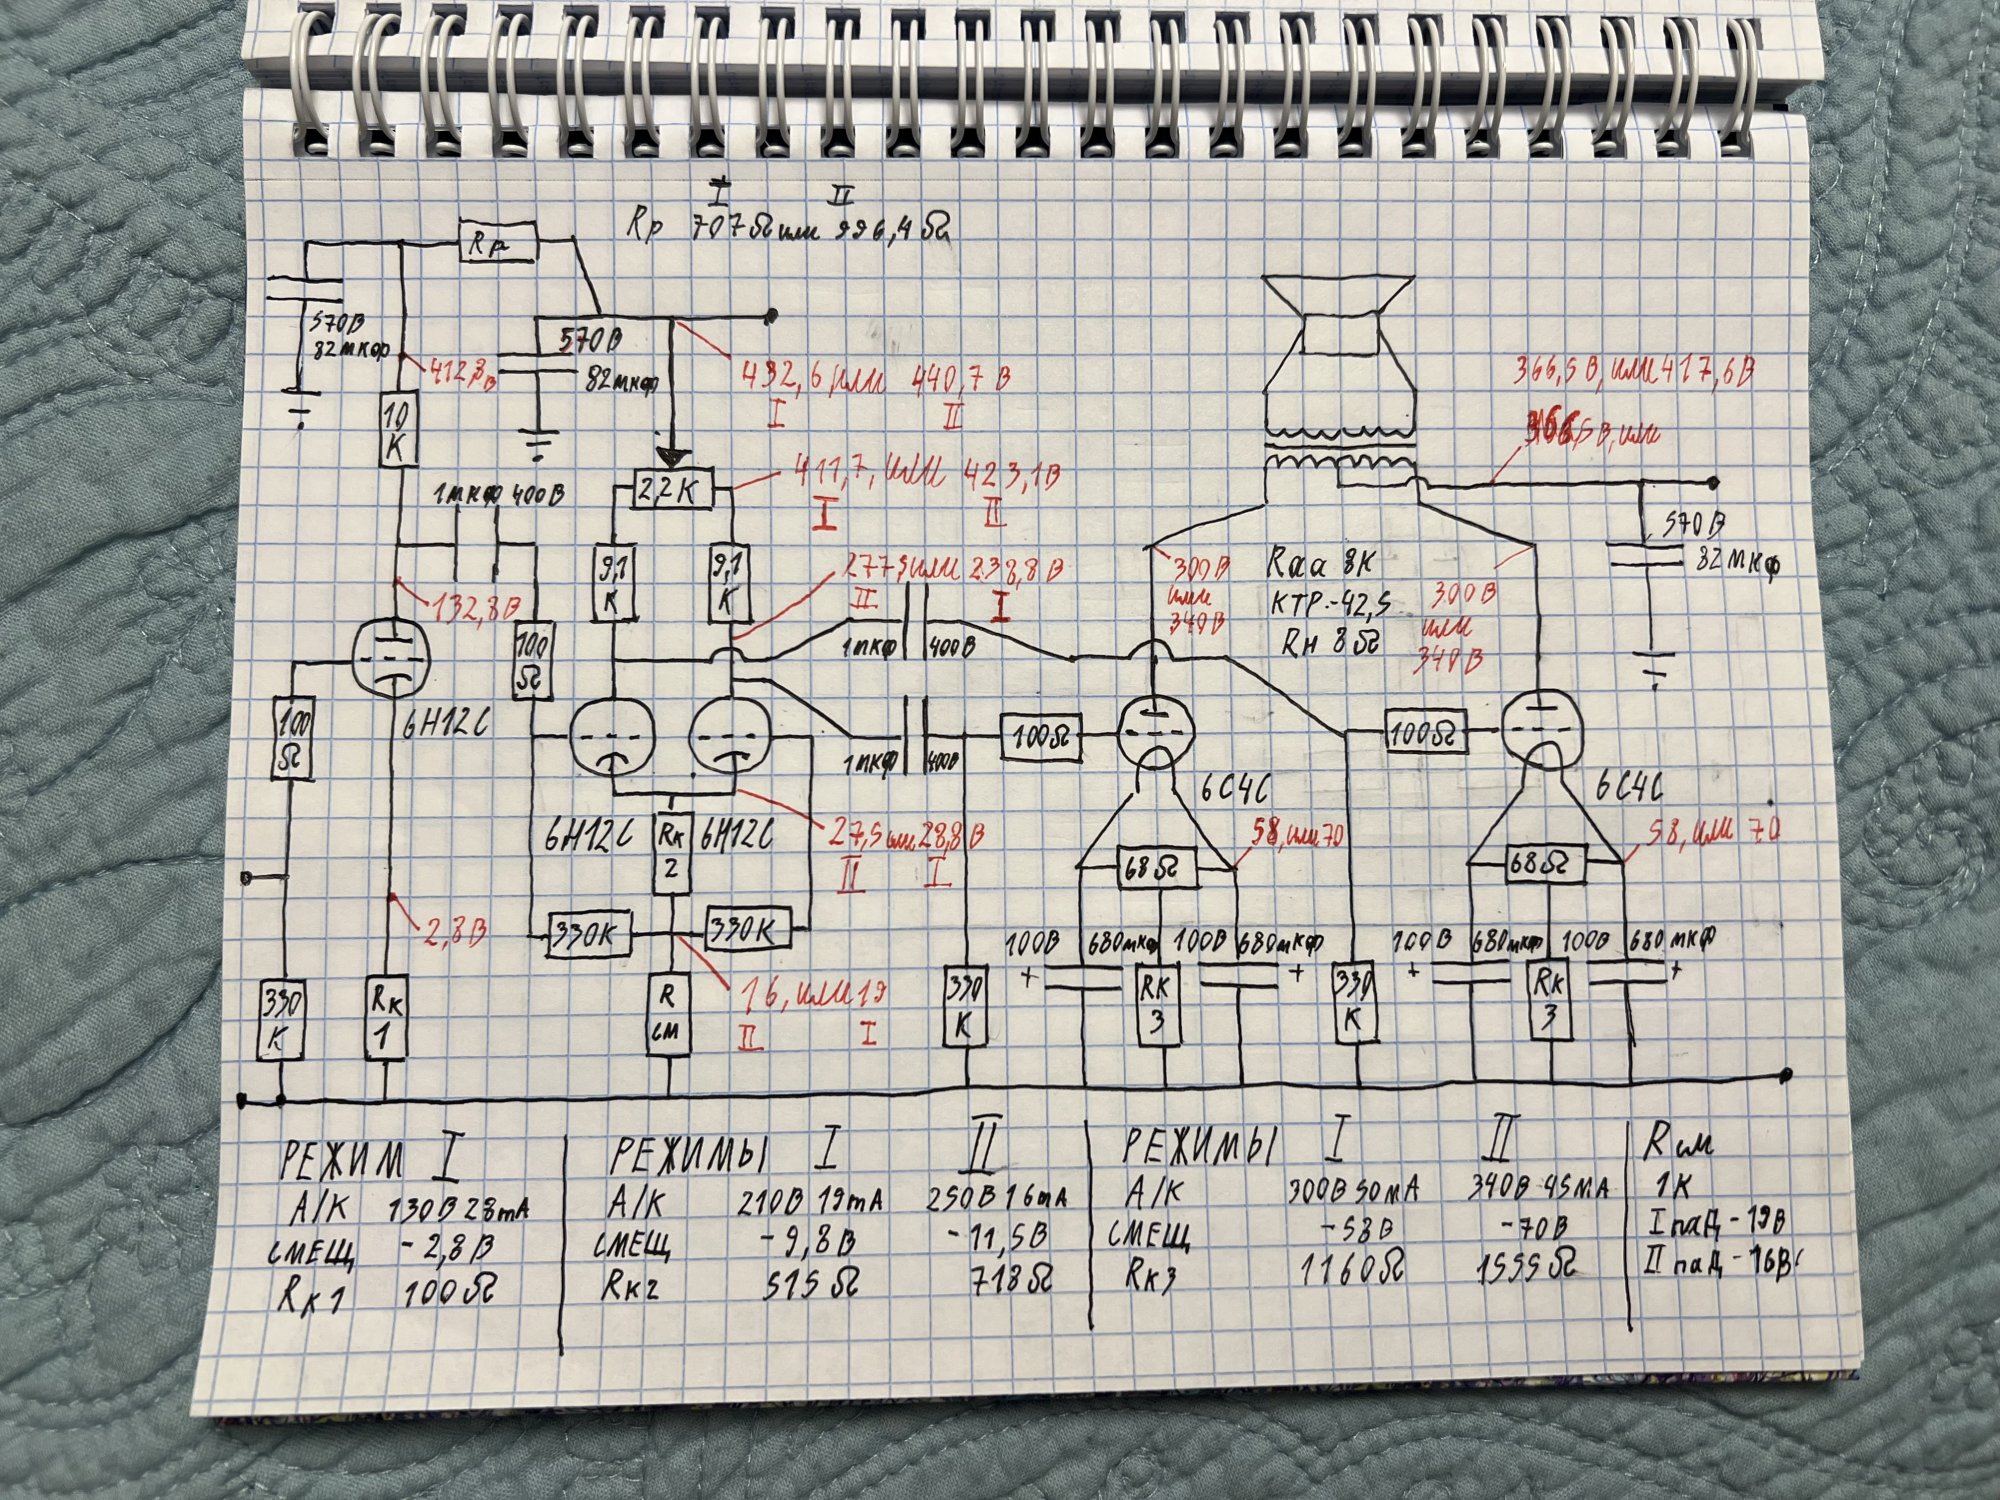 I II
Rр 707Ω или 996,4Ω
Rр
570В
82мкф
412,8В
570В
82мкф
432,6 или 440,7В
I II
366,5В, или 417,6В
10
К
1мкф 400В
2,2К
411,7, или 423,1В
I II
570В
82мкф
9,1
К
9,1
К
277,5 или 238,8В
II I
300В
или
340В
Rаа 8К
КТР-42,5
Rн 8Ω
300В
или
340В
132,8В
100
Ω
1мкф 400В
100
Ω
6Н12С
1мкф 400В
100Ω
100Ω
6С4С
6С4С
6Н12С
Rк
2
6Н12С
27,5 или 28,8В
II I
58, или 70
58, или 70
68Ω
68Ω
2,8В
330К
330К
100В 680мкф 100В 680мкф
100В 680мкф 100В 680мкф
+ +
+ +
330
К
Rк
1
R
см
16, или 19
II I
330
К
Rк
3
330
К
Rк
3
РЕЖИМ I
А/К 130В 28mА
СМЕЩ -2,8В
Rк1 100Ω
РЕЖИМЫ I II
А/К 210В 19mА 250В 16mА
СМЕЩ -9,8В -11,5В
Rк2 515Ω 718Ω
РЕЖИМЫ I II
А/К 300В 50мА 340В 45мА
СМЕЩ -58В -70В
Rк3 1160Ω 1555Ω
Rсм
1К
I паД-19В
II паД-16В